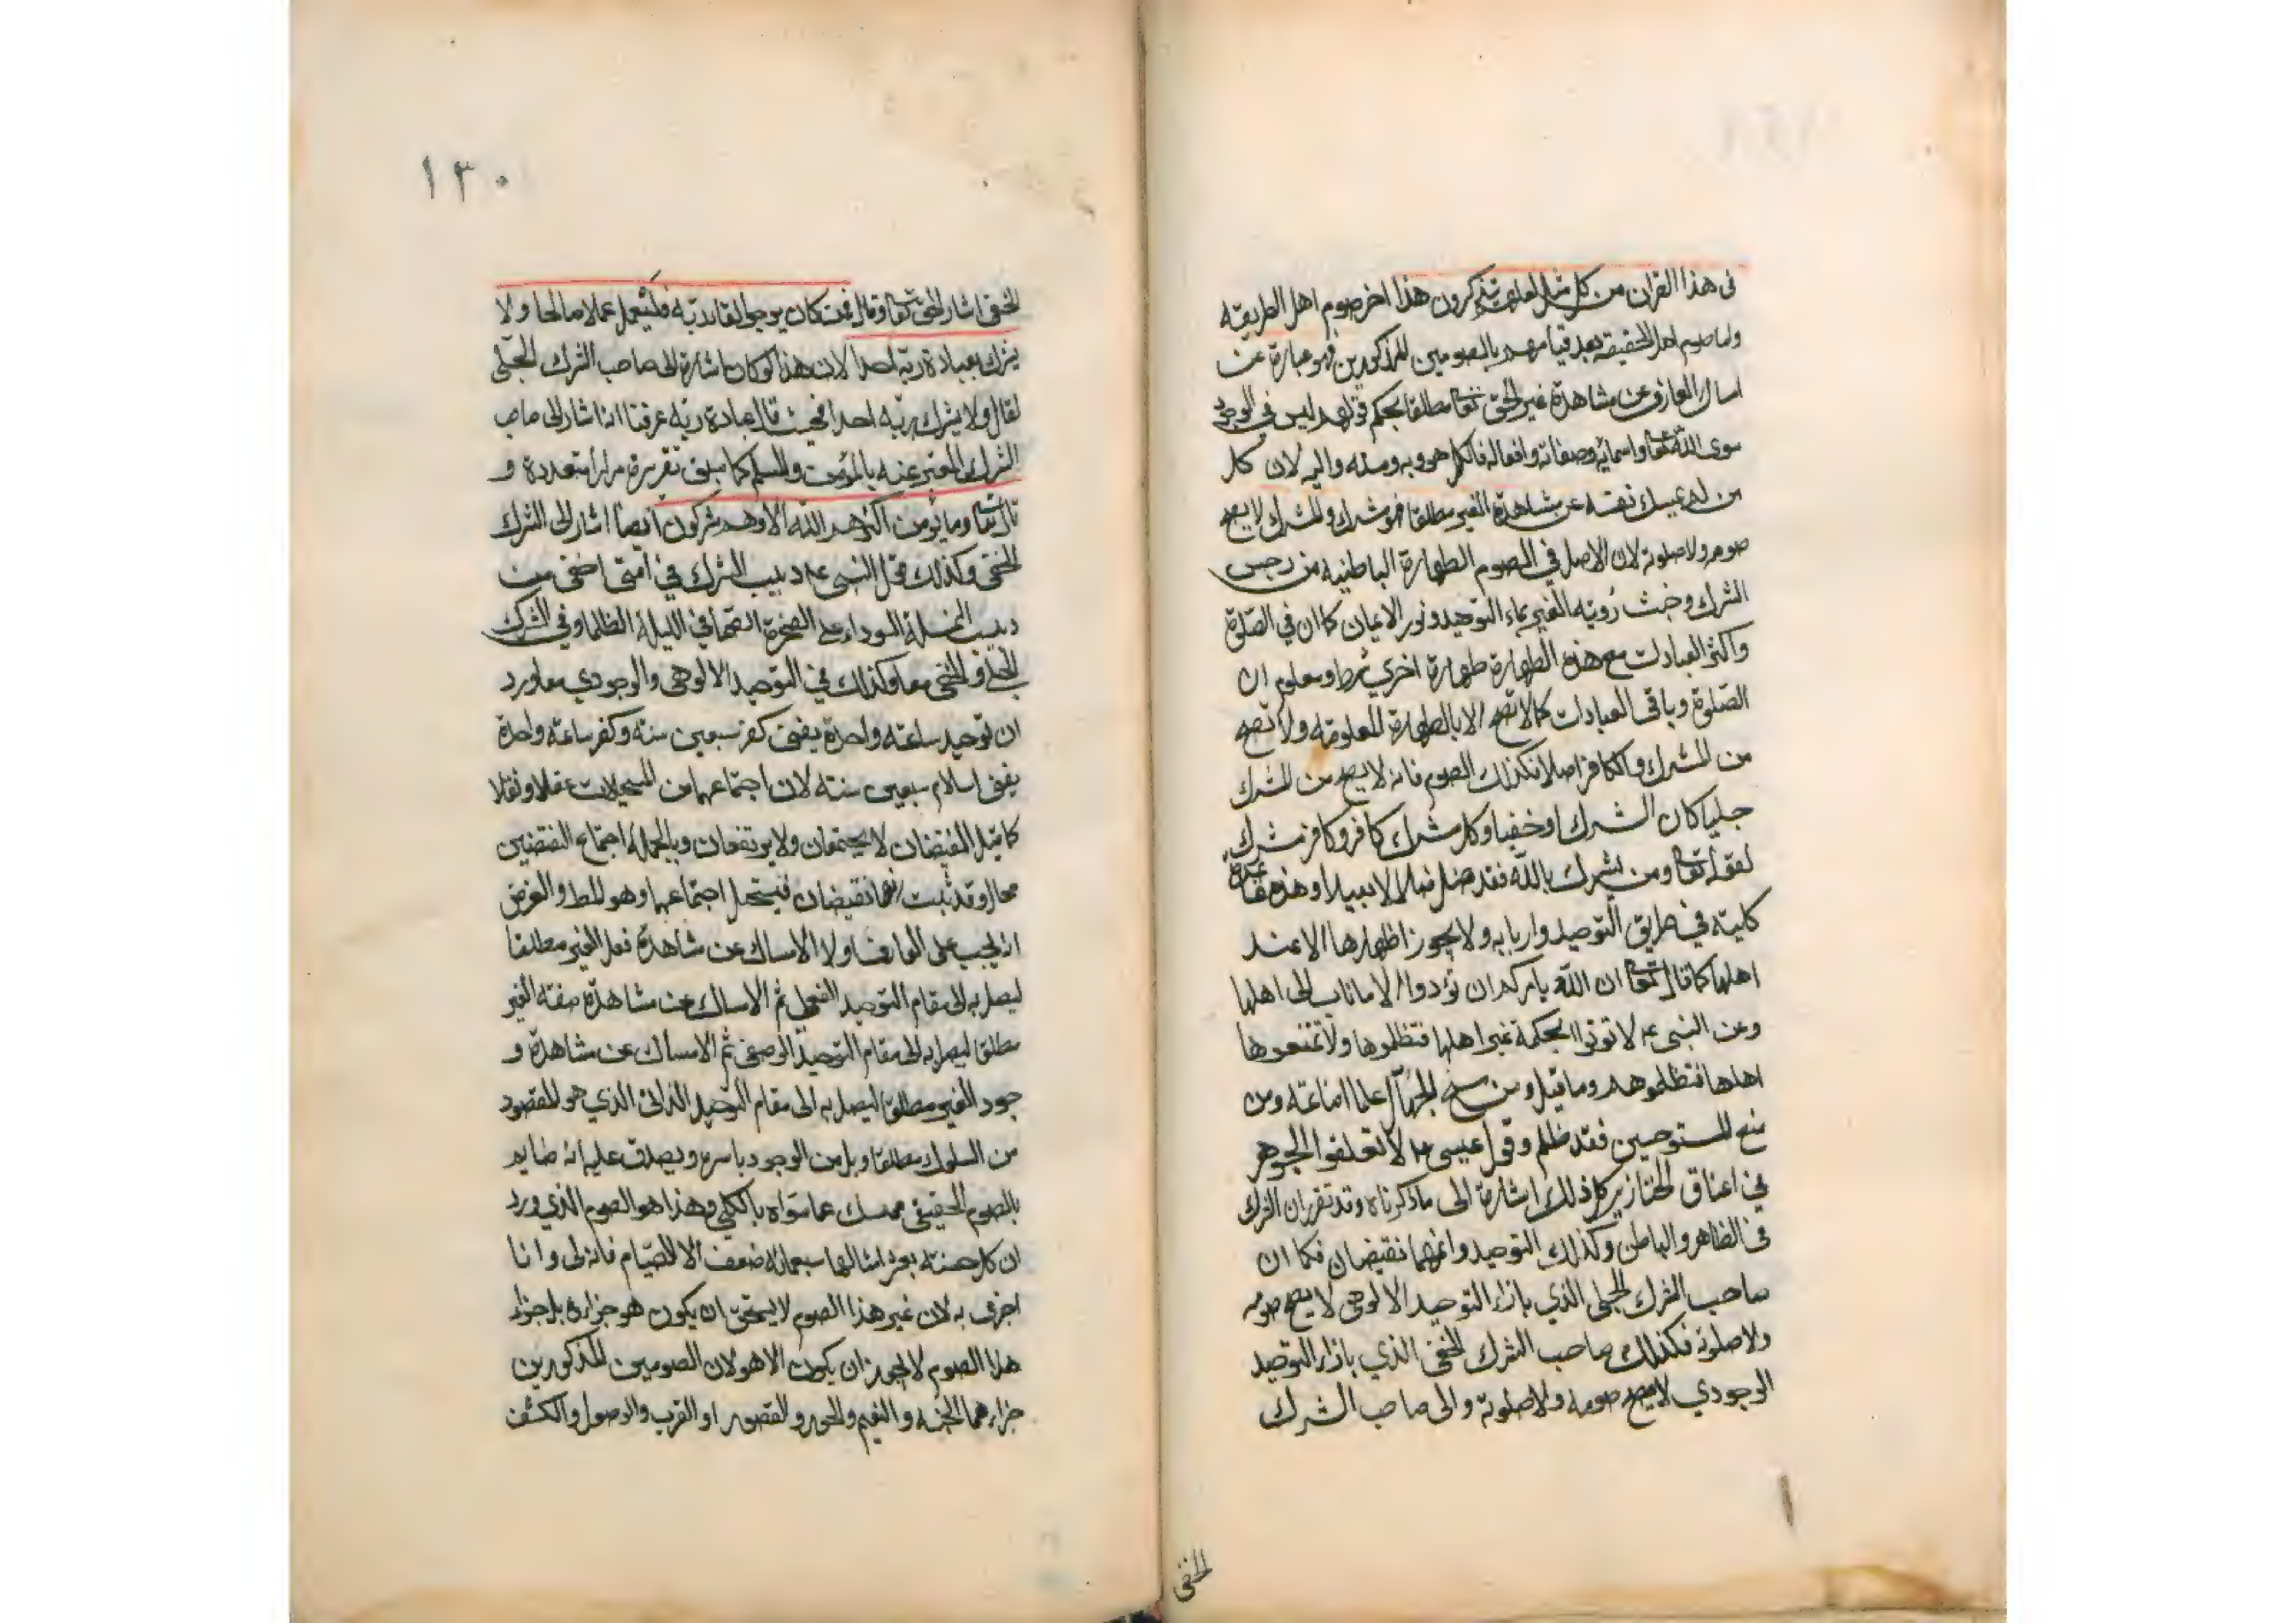 فى هذا القران من كل مثل لعلهم يتذكرون هذا اخر صوم اهل الطريقه
واما صوم اهل الحقيقه بعد قيامهم بالصومين المذكورين فهو عبارة عن
امساك العارف عن مشاهدة غير الحق تعا مطلقا بحكم قولهم ليس فى الوجود
سوى الله تعا واسمائه وصفاته وافعاله فالكل هو وبه ومنه واليه لان كل
من لم يمسك نفسه عن مشاهدة الغير مطلقا فهو مشرك والمشرك لا يصح
صومه ولا صلوته لان الاصل فى الصوم الطهارة الباطنيه من رجس
الشرك وخبث رؤيه الغير بماء التوحيد ونور الايمان كما ان فى الصلوة
واكثر العبادات مع هذه الطهارة طهارة اخرى شرط ومعلوم ان
الصلوة وباقى العبادات كما لا تصح الا بالطهارة المعلومه ولا تصح
من المشرك والكافر اصلا فكذلك الصوم فانه لا يصح من المشرك
جليا كان الشرك او خفيا وكل مشرك كافر وكل كافر مشرك
لقوله تعا ومن يشرك بالله فقد ضل ضلالا بعيدا وهذه قاعدة
كليته فى طريق التوحيد واربابه ولا يجوز اظهارها الا عند
اهلها كما قال تعا ان الله يامركم ان تؤدوا الامانات الى اهلها
وعن النبى عم لا توتوا الحكمة غير اهلها فتظلموها ولا تمنعوها
اهلها فتظلموهم وما قيل ومن منح الجهال علما اضاعه ومن
منع المستوجبين فقد ظلم وقول عيسى عم لا تعلقوا الجوهر
فى اعناق الخنازير كل ذلك اشارة الى ما ذكرناه وقد تقرر ان الشرك
فى الظاهر والباطن وكذلك التوحيد وانهما نقيضان فكما ان
صاحب الشرك الجلى الذي بازاء التوحيد الالوهى لا يصح صومه
ولا صلوته فكذلك صاحب الشرك الخفى الذي بازاء التوحيد
الوجودي لا يصح صومه ولا صلوته والى صاحب الشرك
الخفى
١٣٠
الخفى اشار الحق تعا وقال فمن كان يرجو لقاء ربه فليعمل عملا صالحا ولا
يشرك بعبادة ربه احدا لان هذا لو كان اشارة الى صاحب الشرك الجلى
لقال ولا يشرك بربه احدا فحيث قال بعبادة ربه عرفنا انه اشار الى صاحب
الشرك المعبر عنه بالمؤمن والمسلم كما سبق تقريره مرارا متعددة و
قال تعا وما يؤمن اكثرهم بالله الا وهم مشركون ايضا اشار الى الشرك
الخفى وكذلك قول النبى عم دبيب الشرك فى امتى اخفى من
دبيب النملة السوداء على الصخرة الصماء فى الليلة الظلما وفى الشرك
الجلى والخفى معا وكذلك فى التوحيد الالوهى والوجودي معا ورد
ان توحيد ساعة واحدة يفنى كفر سبعين سنه وكفر ساعة واحدة
يفنى اسلام سبعين سنه لان اجتماعهما من المستحيلات عقلا ونقلا
كما قيل النقيضان لا يجتمعان ولا يرتفعان وبالجملة اجتماع النقضين
محال وقد ثبت انهما نقيضان فيستحيل اجتماعهما وهو المط والغرض
انه يجب على العارف اولا الامساك عن مشاهدة فعل الغير مطلقا
ليصل به الى مقام التوحيد الفعلى ثم الامساك عن مشاهدة صفة الغير
مطلقا ليصل به الى مقام التوحيد الوصفى ثم الامساك عن مشاهدة و
جود الغير مطلقا ليصل به الى مقام التوحيد الذاتى الذي هو المقصود
من السلوك مطلقا وبل من الوجود باسره ويصدق عليه انه صايم
بالصوم الحقيقى ممسك عما سواه بالكلى وهذا هو الصوم الذي ورد
ان كل حسنة بعشر امثالها سبعمائه ضعف الا الصيام فانه لى وانا
اجزى به لان غير هذا الصوم لا يستحق ان يكون هو جزاؤه بل جزاء
هذا الصوم لا يجوز ان يكون الا هو لان الصومين المذكورين
جزاءهما الجنه والنعيم والحور والقصور او القرب والوصول والكشف